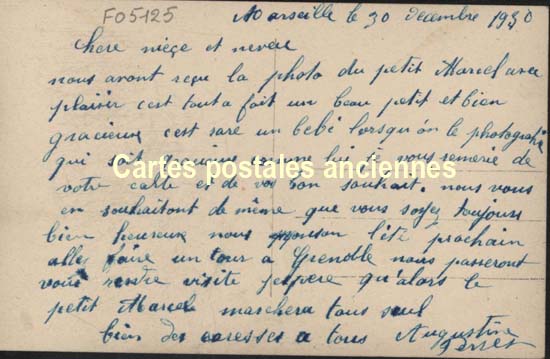 FO5125
Marseille le 30 décembre 1930
chere niéçe et neveu
nous avont reçu la photo du petit Marcel avec
plaisir cest tout a fait un beau petit et bien
gracieux cest rare un bébé lorsqu'on le photografie
qui soit gracieux comme lui vous remerie de
Cartes postales anciennes
votre carte et de vos bon souhait. nous vous
en souhaitont de même que vous soyez toujours
bien heureux nous l'été prochain
allez faire un tour a Grenoble nous passeront
vous rendre visite jespere qu'alors le
petit Marcel marchera tous seul
bien des caresses a tous Augustine